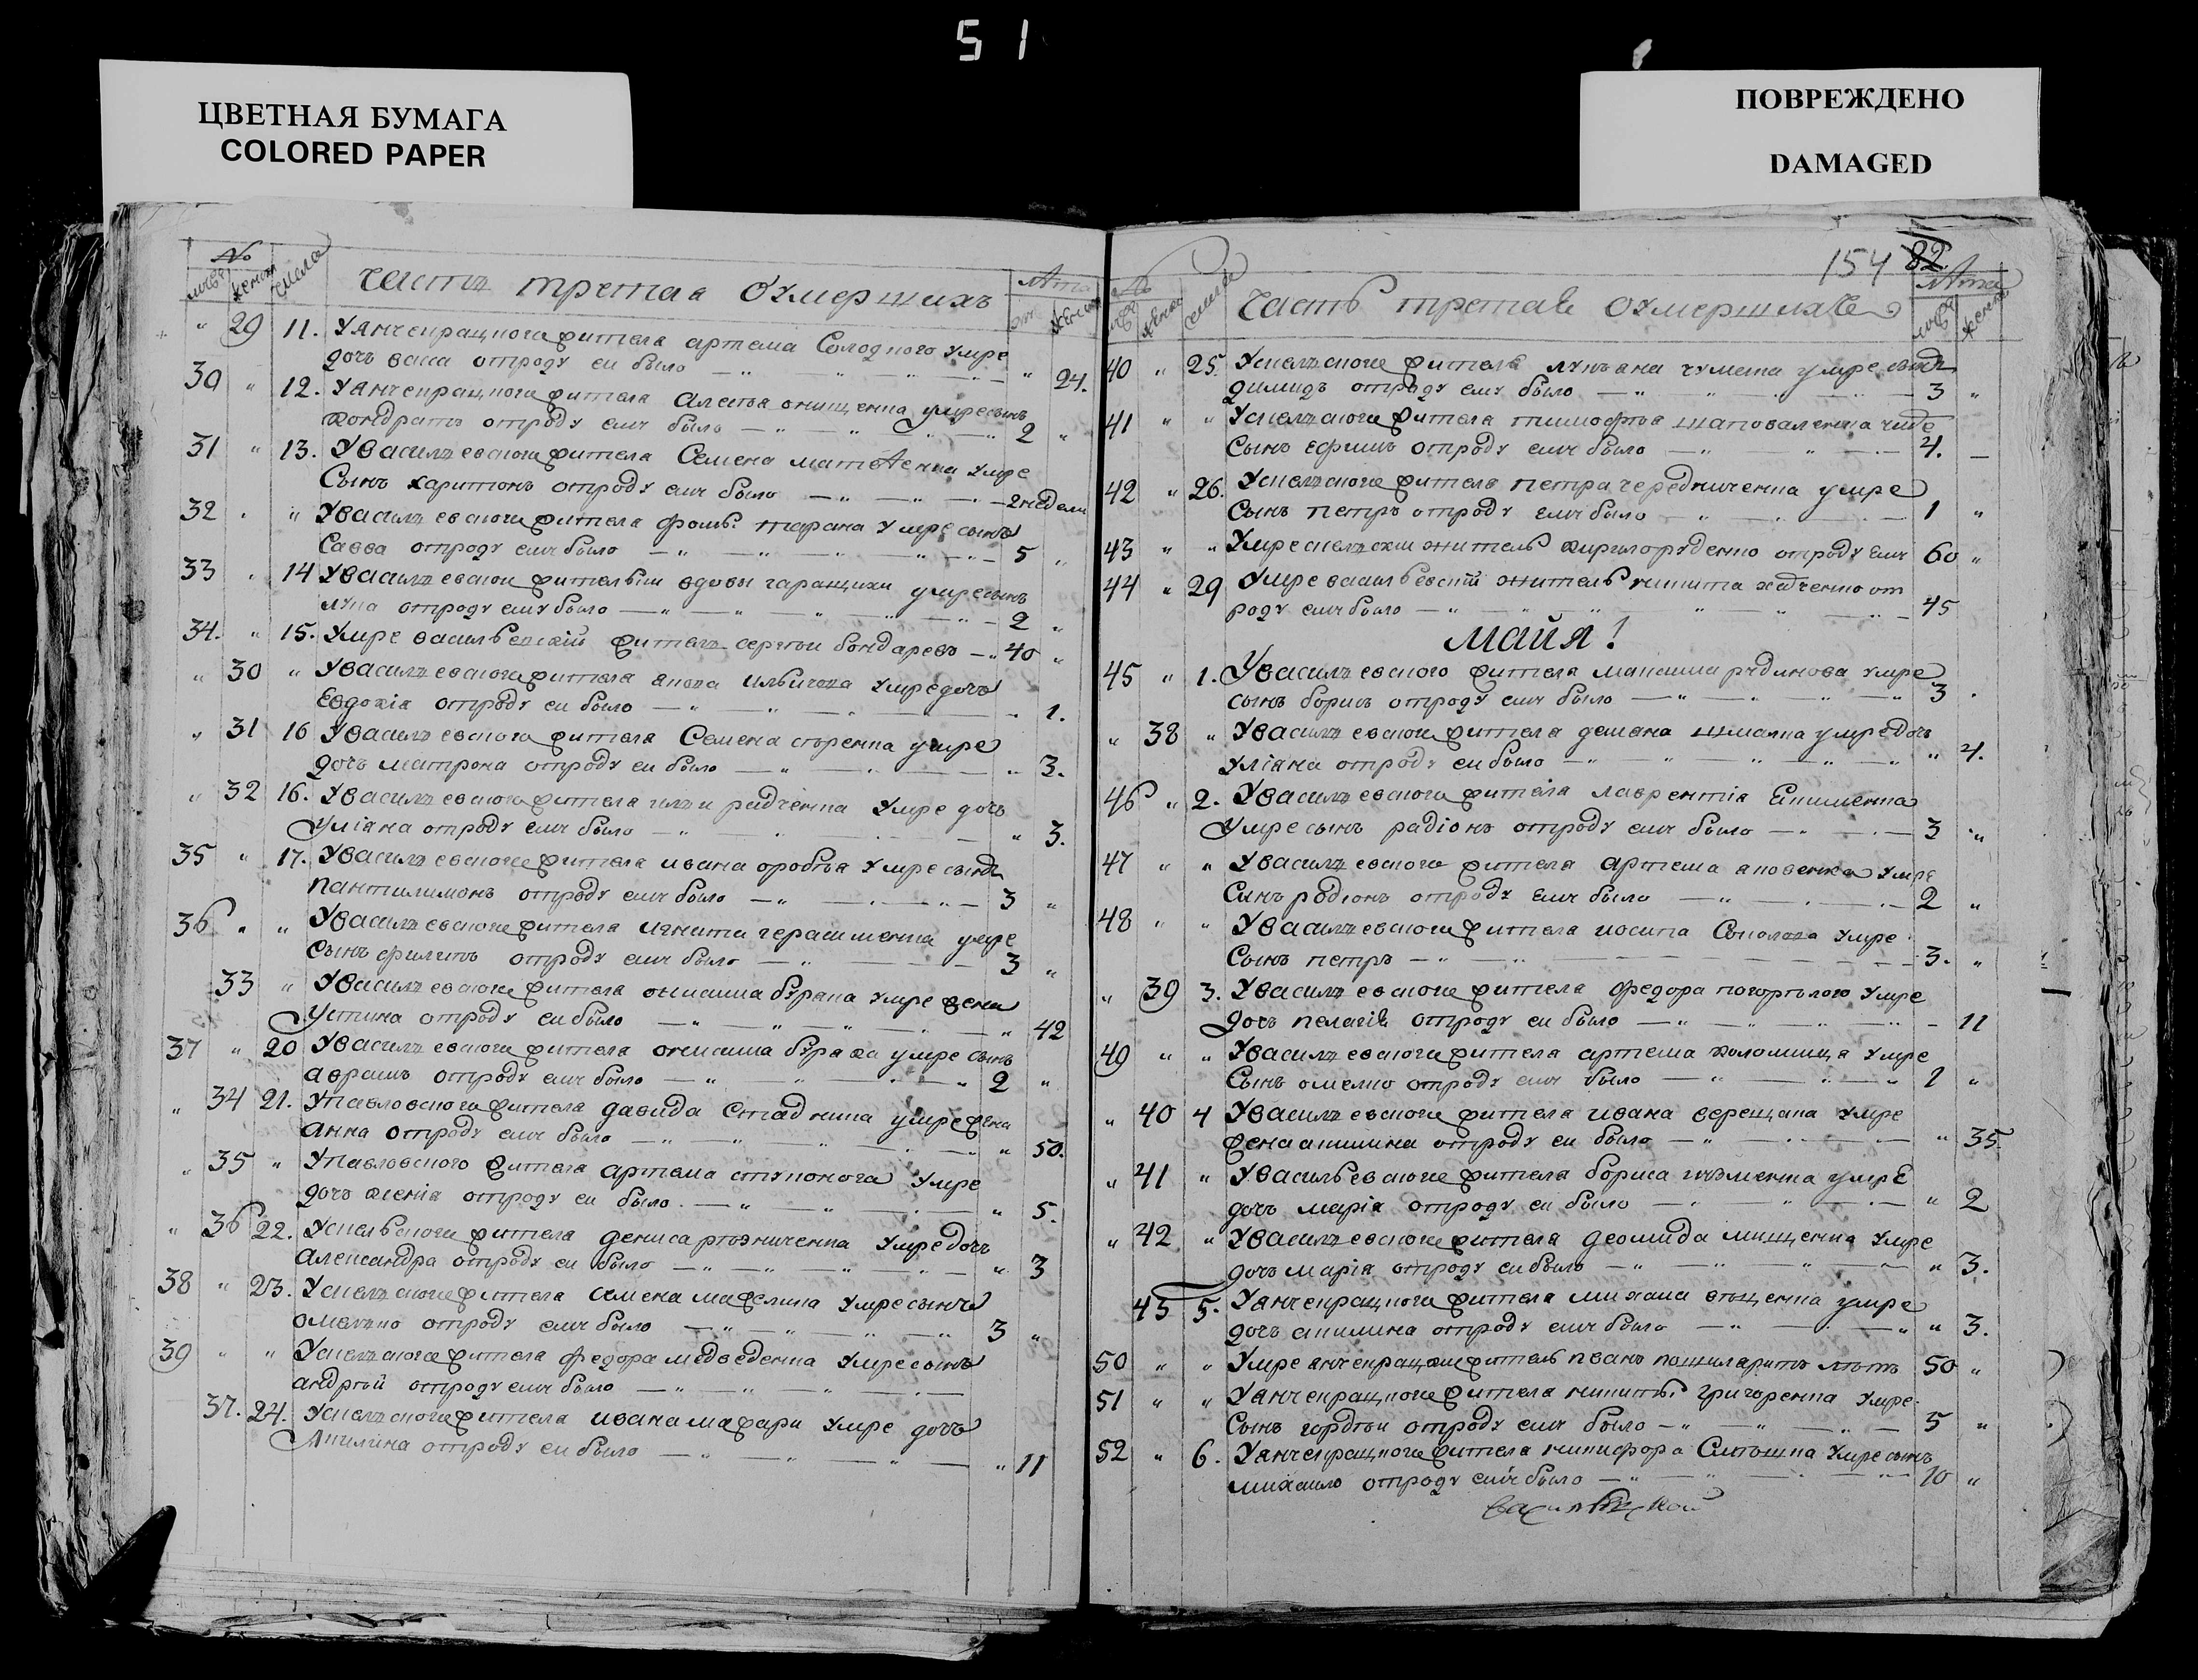 51
ЦВЕТНАЯ БУМАГА
COLORED PAPER
ПОВРЕЖДЕНО
DAMAGED
№ числа часть третая оумершихъ лѣта
" 29 11. У анченрацкого жителя артема Солодного умре
дочь васса отроду еи было — " " " " 24.
30 " 12. У анченрацкого жителя онищенка умре сынъ
кондратъ отроду ему было — " — " 2 "
31 " 13. У василъевского жителя Семена матвѣенка умре
Сынъ харитонъ отроду ему было — " — " — 2 недели
32 " " У василъевского жителя фомы тарана умре сынъ
Савва отроду ему было — " — " — 5 "
33 " 14 У василъевскои жителки вдовы умре сынъ
лука отроду ему было — " — " — 2 "
34. " 15. Умре васильевский жителъ сергѣи бондаревъ — " 40 "
" 30 " У василъевского жителя умре дочь
Евдокiя отроду еи было — " — " 1.
" 31 16 У василъевского жителя Семена умре
дочь матрона отроду еи было — " — " 3.
" 32 16. У василъевского жителя илъи радченка умре дочь
Улiана отроду ему было — " — " 3.
35 " 17. У василъевского жителя ивана оробъя умре сынъ
пантилимонъ отроду ему было — " — 3 "
36 " " У василъевского жителя герасименка умре
сынъ филипъ отроду ему было — " — 3 "
33 " У василъевского жителя онисима бурака умре жена
Устина отроду еи было — " — " 42
37 " 20 У василъевского жителя онисима бурака умре сынъ
аврамъ отроду ему было — " — " 2 "
" 34 21. У павловского жителя давида Стадника умре жена
анна отроду ему было — " — " 50.
" 35 " У павловского жителя артема ступонога умре
дочь ксенiя отроду еи было — " — " 5.
" 36 22. жителя дениса рѣзниченка умре дочь
александра отроду еи было — " — " 3
38 " 23. жителя семена мажелика умре сынъ
омелъко отроду ему было — " — " 3 "
39 " " жителя федора медведенка умре сынъ
андрѣй отроду ему было — " — "
37. 24. жителя ивана мажари умре дочь
Акилина отроду еи было — " — " 11
154 82
№ числа Часть третая оумершихъ лѣта
40 " 25. жителя лукъана чумака умре сынъ
димидъ отроду ему было — " — 3 "
41 " " жителя тимофѣя шаповаленка умре
Сынъ ефимъ отроду ему было — " — 4. —
42 " 26. жителя петра чередниченка умре
Сынъ петръ отроду ему было — 1 "
43 " " Умре житель кирило руденко отроду ему 60 "
44 " 29 Умре васильевский житель никита от
роду ему было — " — " 45
майя!
45 " 1. У василъевского жителя максима умре
сынъ борисъ отроду ему было — " — " 3
" 38 " У василъевского жителя демяна шмалка умре дочь
улiяна отроду еи было — " — " 4.
46 " 2. У василъевского жителя лаврентiя Екименка
Умре сынъ радiонъ отроду ему было — 3 "
47 " " У василъевского жителя артема яковенка умре
Синъ родионъ отроду ему было — " — 2 "
48 " " У василъевского жителя иосипа Соколова умре
Сынъ петръ — " — 3. "
" 39 3. У василъевского жителя федора погорѣлого умре
Дочь пелагiя отроду еи было — " — 11
49 " " У василъевского жителя артема коломийца умре
Сынъ омелко отроду ему было — " — " 1 "
" 40 4 У василъевского жителя ивана верещака умре
жена акилина отроду еи было — " — " 35.
" 41 " У васильевского жителя бориса кузменка умре
дочь марiя отроду еи было — " 2
" 42 " У василъевского жителя деомида мищенка умре
дочь марiя отроду еи было — " — " 3.
43 5. У анченрацкого жителя михаила умре
дочь акилина отроду ему было — " — " 3.
50 " " Умре анченрацкии житель иванъ лѣтъ 50 "
51 " " У анченрацкого жителя никиты григоренка умре
Сынъ гордѣи отроду ему было — " — 5 "
52 " 6. У анченрацкого жителя никифора умре сынъ
михаило отроду ему было — " — " 10 "